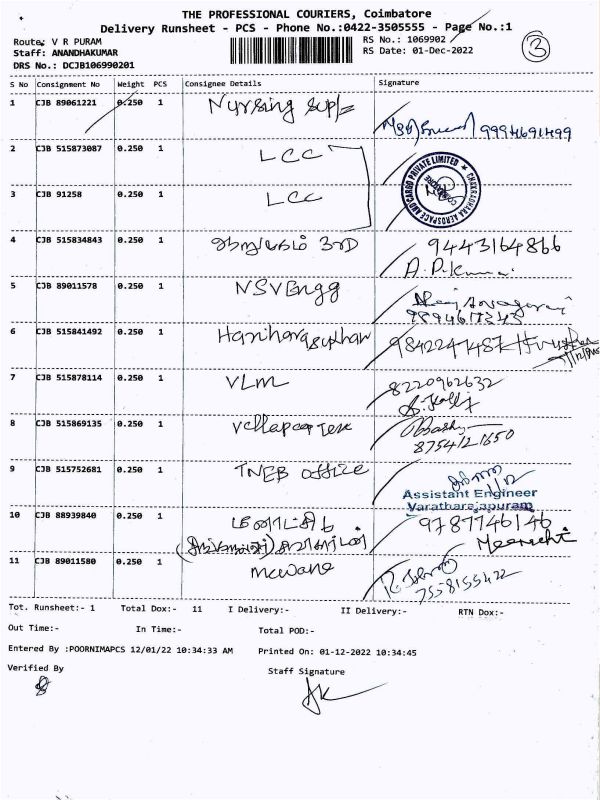 THE PROFESSIONAL COURIERS, Coimbatore
Delivery Runsheet - PCS - Phone No.:0422-3505555 - Page No.:1
Route: V R PURAM
RS No.: 1069902
3
Staff: ANANDHAKUMAR
RS Date: 01-Dec-2022
DRS No.: DCJB106990201
S No Consignment No Weight PCS Consignee Details Signature
1 CJB 89061221 0.250 1 Nursing 9994691499
2 CJB 515873087 0.250 1 LCC
CHAKRADHARA AEROSPACE AND CARGO PRIVATE LIMITED
3 CJB 91258 0.250 1 LCC
4 CJB 515834843 0.250 1 9443164866
A.P.Kumar
5 CJB 89011578 0.250 1 NSV Engg
6 CJB 515841492 0.250 1 Hariharasuthan 9842247487
7 CJB 515878114 0.250 1 VLM 8220962632
8 CJB 515869135 0.250 1
8754121650
9 CJB 515752681 0.250 1 TNEB office
Assistant Engineer
Varatharajapuram
10 CJB 88939840 0.250 1 மீனாட்சி 9787746146
Meenachi
11 CJB 89011580 0.250 1 Mcwane
7558155422
Tot. Runsheet:- 1 Total Dox:- 11 I Delivery:- II Delivery:- RTN Dox:-
Out Time:- In Time:- Total POD:-
Entered By :POORNIMAPCS 12/01/22 10:34:33 AM Printed On: 01-12-2022 10:34:45
Verified By Staff Signature